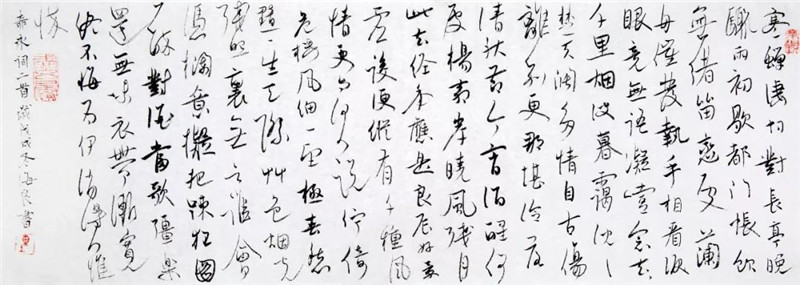 寒蝉凄切對長亭晚
驟雨初歇都门帳飲
無绪留恋處蘭
舟催發執手相看淚
眼竟無语凝噎念去去
千里烟波暮靄沈々
楚天阔多情自古傷
離别更那堪冷落
清秋节今宵酒醒何
處楊柳岸曉風残月
此去经年應是良辰好景
虚設便縱有千種風
情更与何人说佇倚
危楼風细々望極春愁
黯々生天際艸色烟光
残照裏無言谁會
憑欄意擬把疎狂圖
一醉對酒當歌强樂
還無味衣帶漸寬
终不悔为伊消得人憔
悴
柳永词二首歲戊戌冬海良書